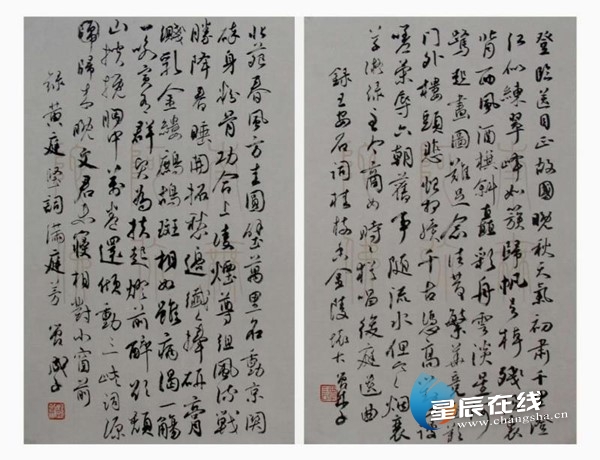 登臨送目正故國晚秋天氣初肅千里澄
江似練翠峰如簇歸帆去棹殘陽裏
背西風酒旗斜矗彩舟雲淡星河
鷺起畫圖難足念往昔繁華競逐嘆
門外樓頭悲恨相續千古憑高對此謾
嗟榮辱六朝舊事隨流水但寒烟衰
草凝绿至今商女時時猶唱後庭遗曲
錄王安石詞桂枝香金陵懷古
北苑春風方圭圓璧萬里名動京關
碎身粉骨功合上凌煙尊俎風流戰
勝降春睡開拓愁邊纖纖捧研膏
濺乳金縷鷓鴣斑相如雖病渴一觴
一咏賓有群賢為扶起燈前醉玉頹
山搜攪胸中萬卷還傾動三峽詞源
歸來晚文君未寢相對小窗前
錄黄庭堅詞滿庭芳
星辰在线
www.changsha.cn